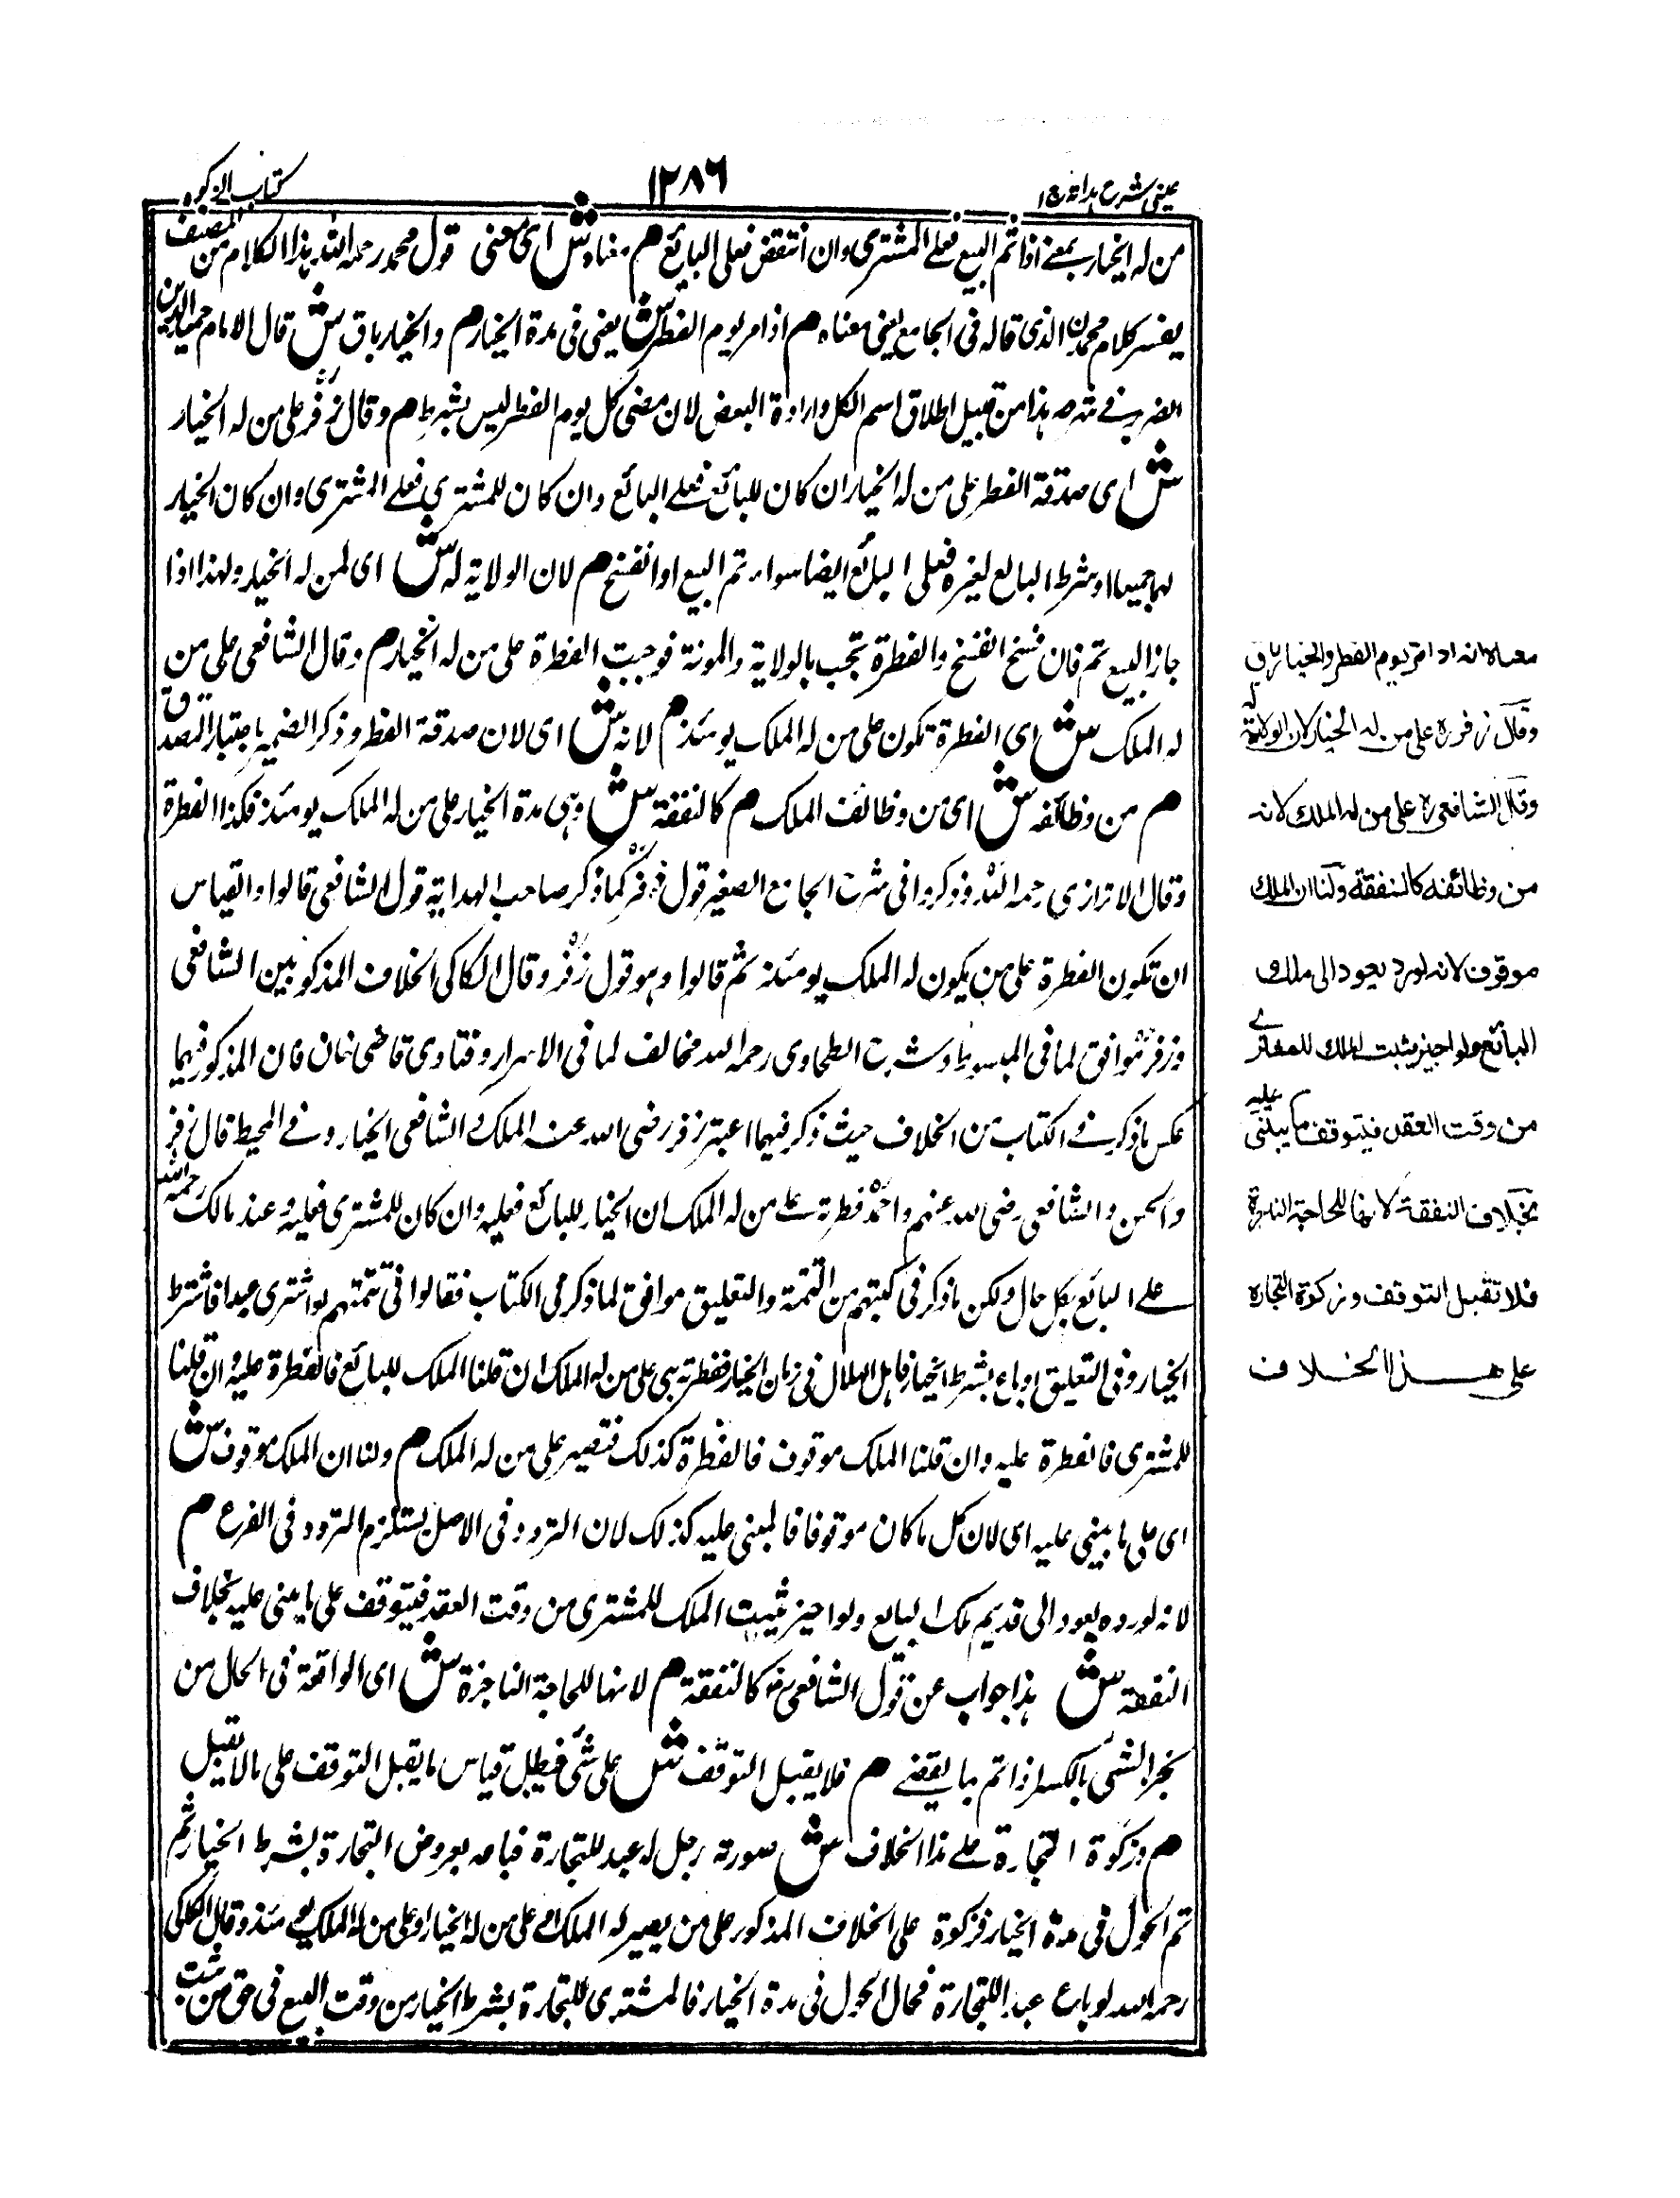 عینی شرح ہدایہ ج ١
١٢٨٦
کتاب الزکوة
من له الخیار بمعنے اذا تم البیع فعلے المشتری وان انتقض فعلی البائع م معناه ش ای معنی قول محمد رحمه الله ہذا الکلام من المصنف
یفسر کلام محمد الذی قاله فی الجامع یعنی معناه م اذا مر یوم الفطر ش یعنی فی مدة الخیار م والخیار باق ش قال الامام حمید الدین
الضریر فے شرحه ہذا من قبیل اطلاق اسم الکل وارادة البعض لان مضی کل یوم الفطر لیس بشرط م وقال زفر علی من له الخیار
ش ای صدقة الفطر علی من له الخیار ان کان للبائع فعلے البائع وان کان للمشتری فعلے المشتری وان کان الخیار
لہما جمیعا او شرط البائع لغیره فعلی البائع ایضا سواء تم البیع او انفسخ م لان الولایة له ش ای لمن له الخیار ولہذا اذا
جاز البیع تم فان فسخ انفسخ والفطرة تجب بالولایة والمونة فوجبت الفطرة علی من له الخیار م وقال الشافعی علی من
له الملک ش ای الفطرة تکون علی من له الملک یومئذ م لانه ش ای لان صدقة الفطر وذکر الضمیر باعتبار التصدق
م من وظائفه ش ای من وظائف الملک م کالنفقة ش وہی مدة الخیار علی من له الملک یومئذ فکذا الفطرة
وقال الاترازی رحمه الله وذکروا فی شرح الجامع الصغیر قول زفر کما ذکر صاحب الہدایة قول الشافعی قالوا والقیاس
ان تکون الفطرة علی من یکون له الملک یومئذ ثم قالوا وہو قول زفر وقال الکاکی الخلاف المذکور بین الشافعی
وزفر موافق لما فی المبسوط وشرح الطحاوی رحمه الله مخالف لما فی الاسرار وفتاوی قاضی خان فان المذکور فیہما
عکس ما ذکر فے الکتاب من الخلاف حیث ذکر فیہما اعتبر زفر رضی الله عنه الملک والشافعی الخیار وفے المحیط قال زفر
والحسن والشافعی رضی الله عنہم واحمد فطرته علے من له الملک ان الخیار للبائع فعلیه وان کان للمشتری فعلیه وعند مالک رحمه الله
علے البائع بکل حال ولکن ما ذکر فی کتبہم من التتمة والتعلیق موافق لما ذکر فی الکتاب فقالوا فی تتمتہم لو اشتری عبدا فاشترط
الخیار وفی التعلیق او باع بشرط الخیار فاہل الہلال فی زمان الخیار ففطرته ہی علی من له الملک ان قلنا الملک للبائع فالفطرة علیه وان قلنا
للمشتری فالفطرة علیه وان قلنا الملک موقوف فالفطرة کذلک فتصیر علی من له الملک م ولنا ان الملک موقوف ش
ای علی ما یبنی علیه ای لان کل ما کان موقوفا فالمبنی علیه کذلک لان التردد فی الاصل یستلزم التردد فی الفرع م
لانه لو رده یعود الی قدیم ملک البایع ولو اجیز یثبت الملک للمشتری من وقت العقد فیتوقف علی ما یبنی علیه بخلاف
النفقة ش ہذا جواب عن قول الشافعی کالنفقة م لانہا للحاجة الناجزة ش ای الواقعة فی الحال من
نجز الشئ بالکسر اذا تم بما یقضے م فلا یقبل التوقف ش علی شئ فیطل قیاس ما یقبل التوقف علی ما لا یقبل
م وزکوة التجارة علے ہذا الخلاف ش صورته رجل له عبد للتجارة فباعه بعروض التجارة بشرط الخیار ثم
تم الحول فی مدة الخیار فزکوة علی الخلاف المذکور علی من یصیر له الملک او علی من له الخیار او علی من له الملک یومئذ وقال الکاکی
رحمه الله لو باع عبدا للتجارة فحال الحول فی مدة الخیار فالمشتری للتجارة بشرط الخیار من وقت البیع فی حق من یثبت
معناه انه اذا مر یوم الفطر والخیار باق
وقال زفر ره علی من له الخیار لان الولایة له
وقال الشافعی ره علی من له الملک لانه
من وظائفه کالنفقة ولنا ان الملک
موقوف لانه لو رد یعود الی ملک
البائع ولو اجیز یثبت الملک للمشتری
من وقت العقد فیتوقف ما یبتنی علیه
بخلاف النفقة لانها للحاجة الناجزة
فلا تقبل التوقف وزکوة التجارة
علی هذا الخلاف